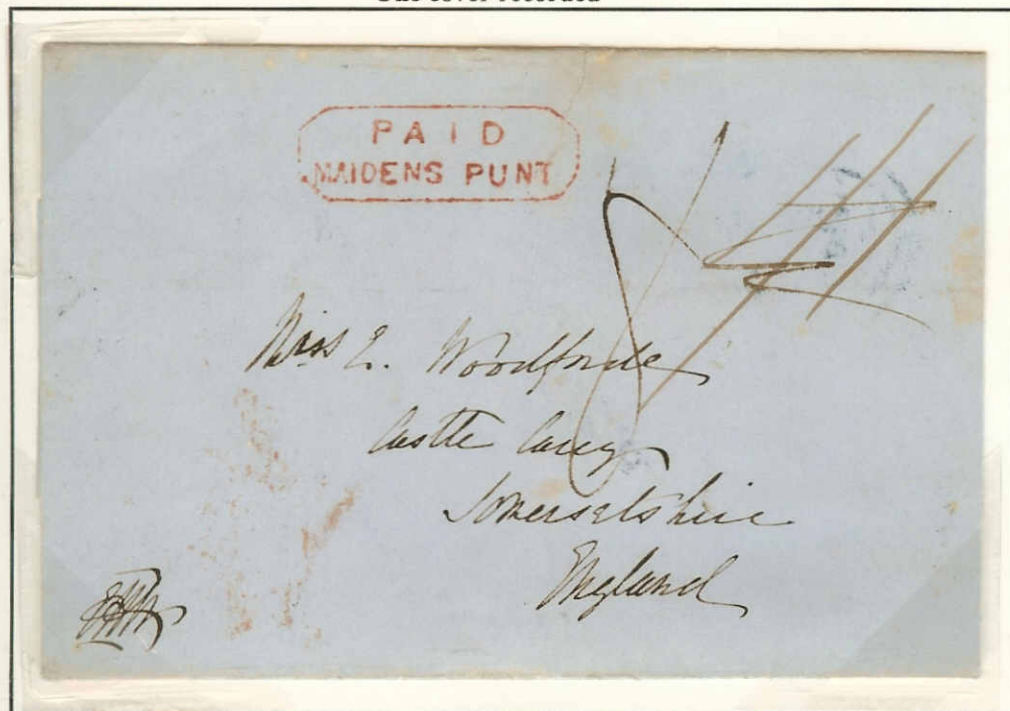 PAID
MAIDENS PUNT
Miss E. Woodforde
Castle Carey
Somersetshire
England